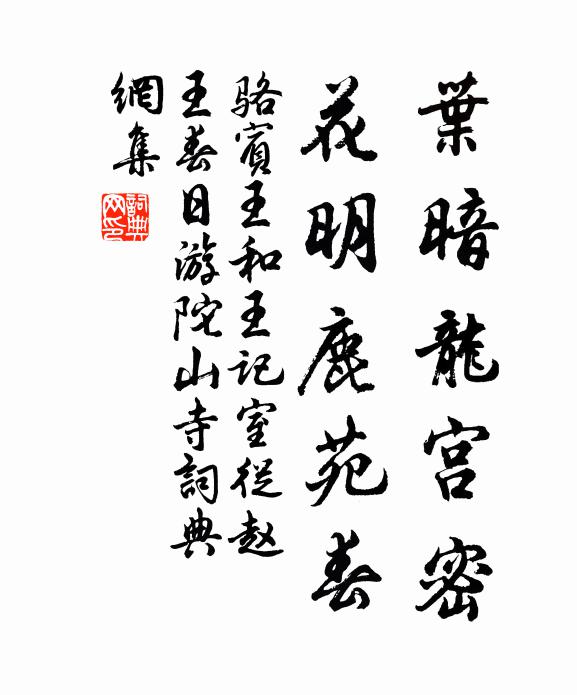 葉暗龍宮密
花明鹿苑春
駱賓王和王記室從赵
王春日游陀山寺詞典
網集
詞典网印